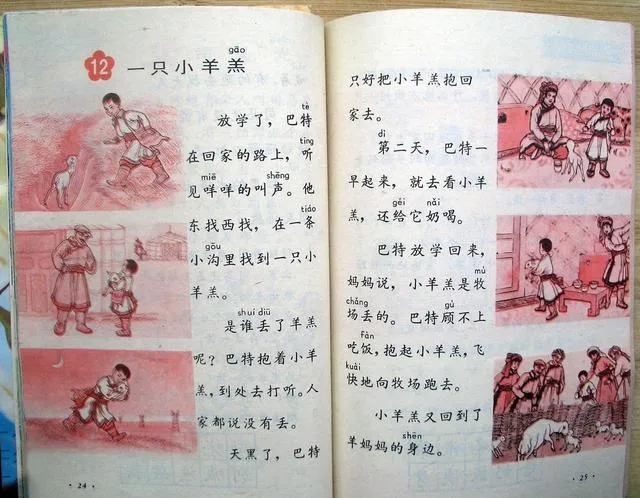 gāo
12 一只小羊羔
tè
放学了，巴特
tīng
在回家的路上，听
miē shēng
见咩咩的叫声。他
tiáo
东找西找，在一条
gōu
小沟里找到一只小
羊羔。
shuí diū
是谁丢了羊羔
呢？巴特抱着小羊
羔，到处去打听。人
家都说没有丢。
天黑了，巴特
· 24 ·
只好把小羊羔抱回
家去。
dì
第二天，巴特一
早起来，就去看小羊
gěi nǎi
羔，还给它奶喝。
巴特放学回来，
mù
妈妈说，小羊羔是牧
chǎng gù
场丢的。巴特顾不上
fàn
吃饭，抱起小羊羔，飞
kuài
快地向牧场跑去。
小羊羔又回到了
shēn
羊妈妈的身边。
· 25 ·